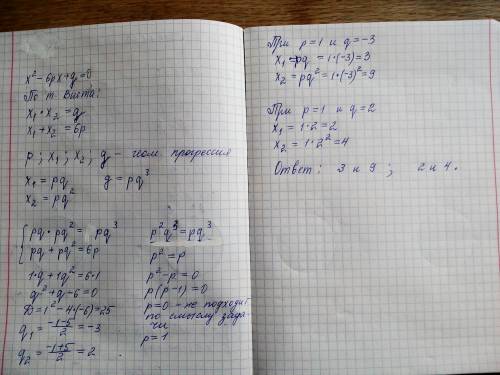 x² - 6px + q = 0
По т. Виета:
x₁ · x₂ = q
x₁ + x₂ = 6p
p ; x₁ ; x₂ ; q – геом. прогрессия
x₁ = pq      q = pq³
x₂ = pq²
{ pq · pq² = pq³
pq + pq² = 6p
1·q + 1q² = 6·1
q² + q - 6 = 0
D = 1² - 4·(-6) = 25
q₁ = (-1-5)/2 = -3
q₂ = (-1+5)/2 = 2
p²q³ = pq³
p² = p
p² - p = 0
p(p-1) = 0
p = 0 – не подходит
по смыслу зада-
чи
p = 1
При p = 1 и q = -3
x₁ = pq = 1·(-3) = 3
x₂ = pq² = 1·(-3)² = 9
При p = 1 и q = 2
x₁ = 1·2 = 2
x₂ = 1·2² = 4
Ответ: 3 и 9 ; 2 и 4.